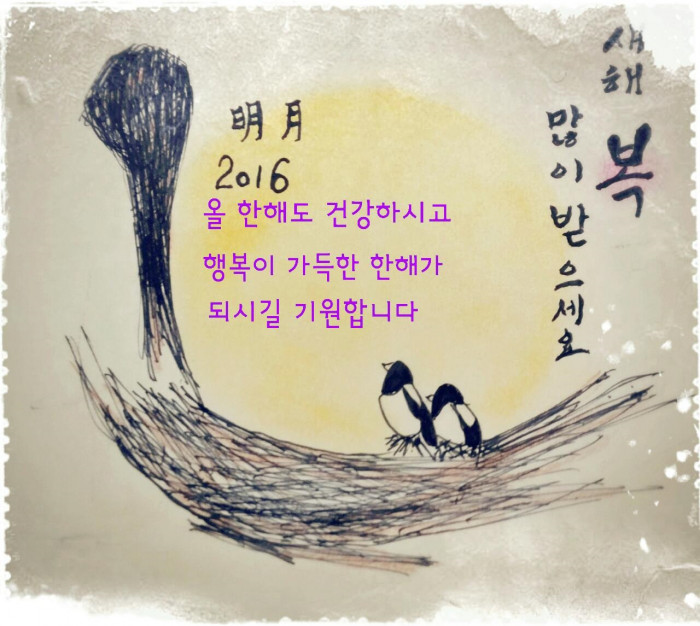 明月
2016
올 한해도 건강하시고
행복이 가득한 한해가
되시길 기원합니다
새해
복
많이 받으세요